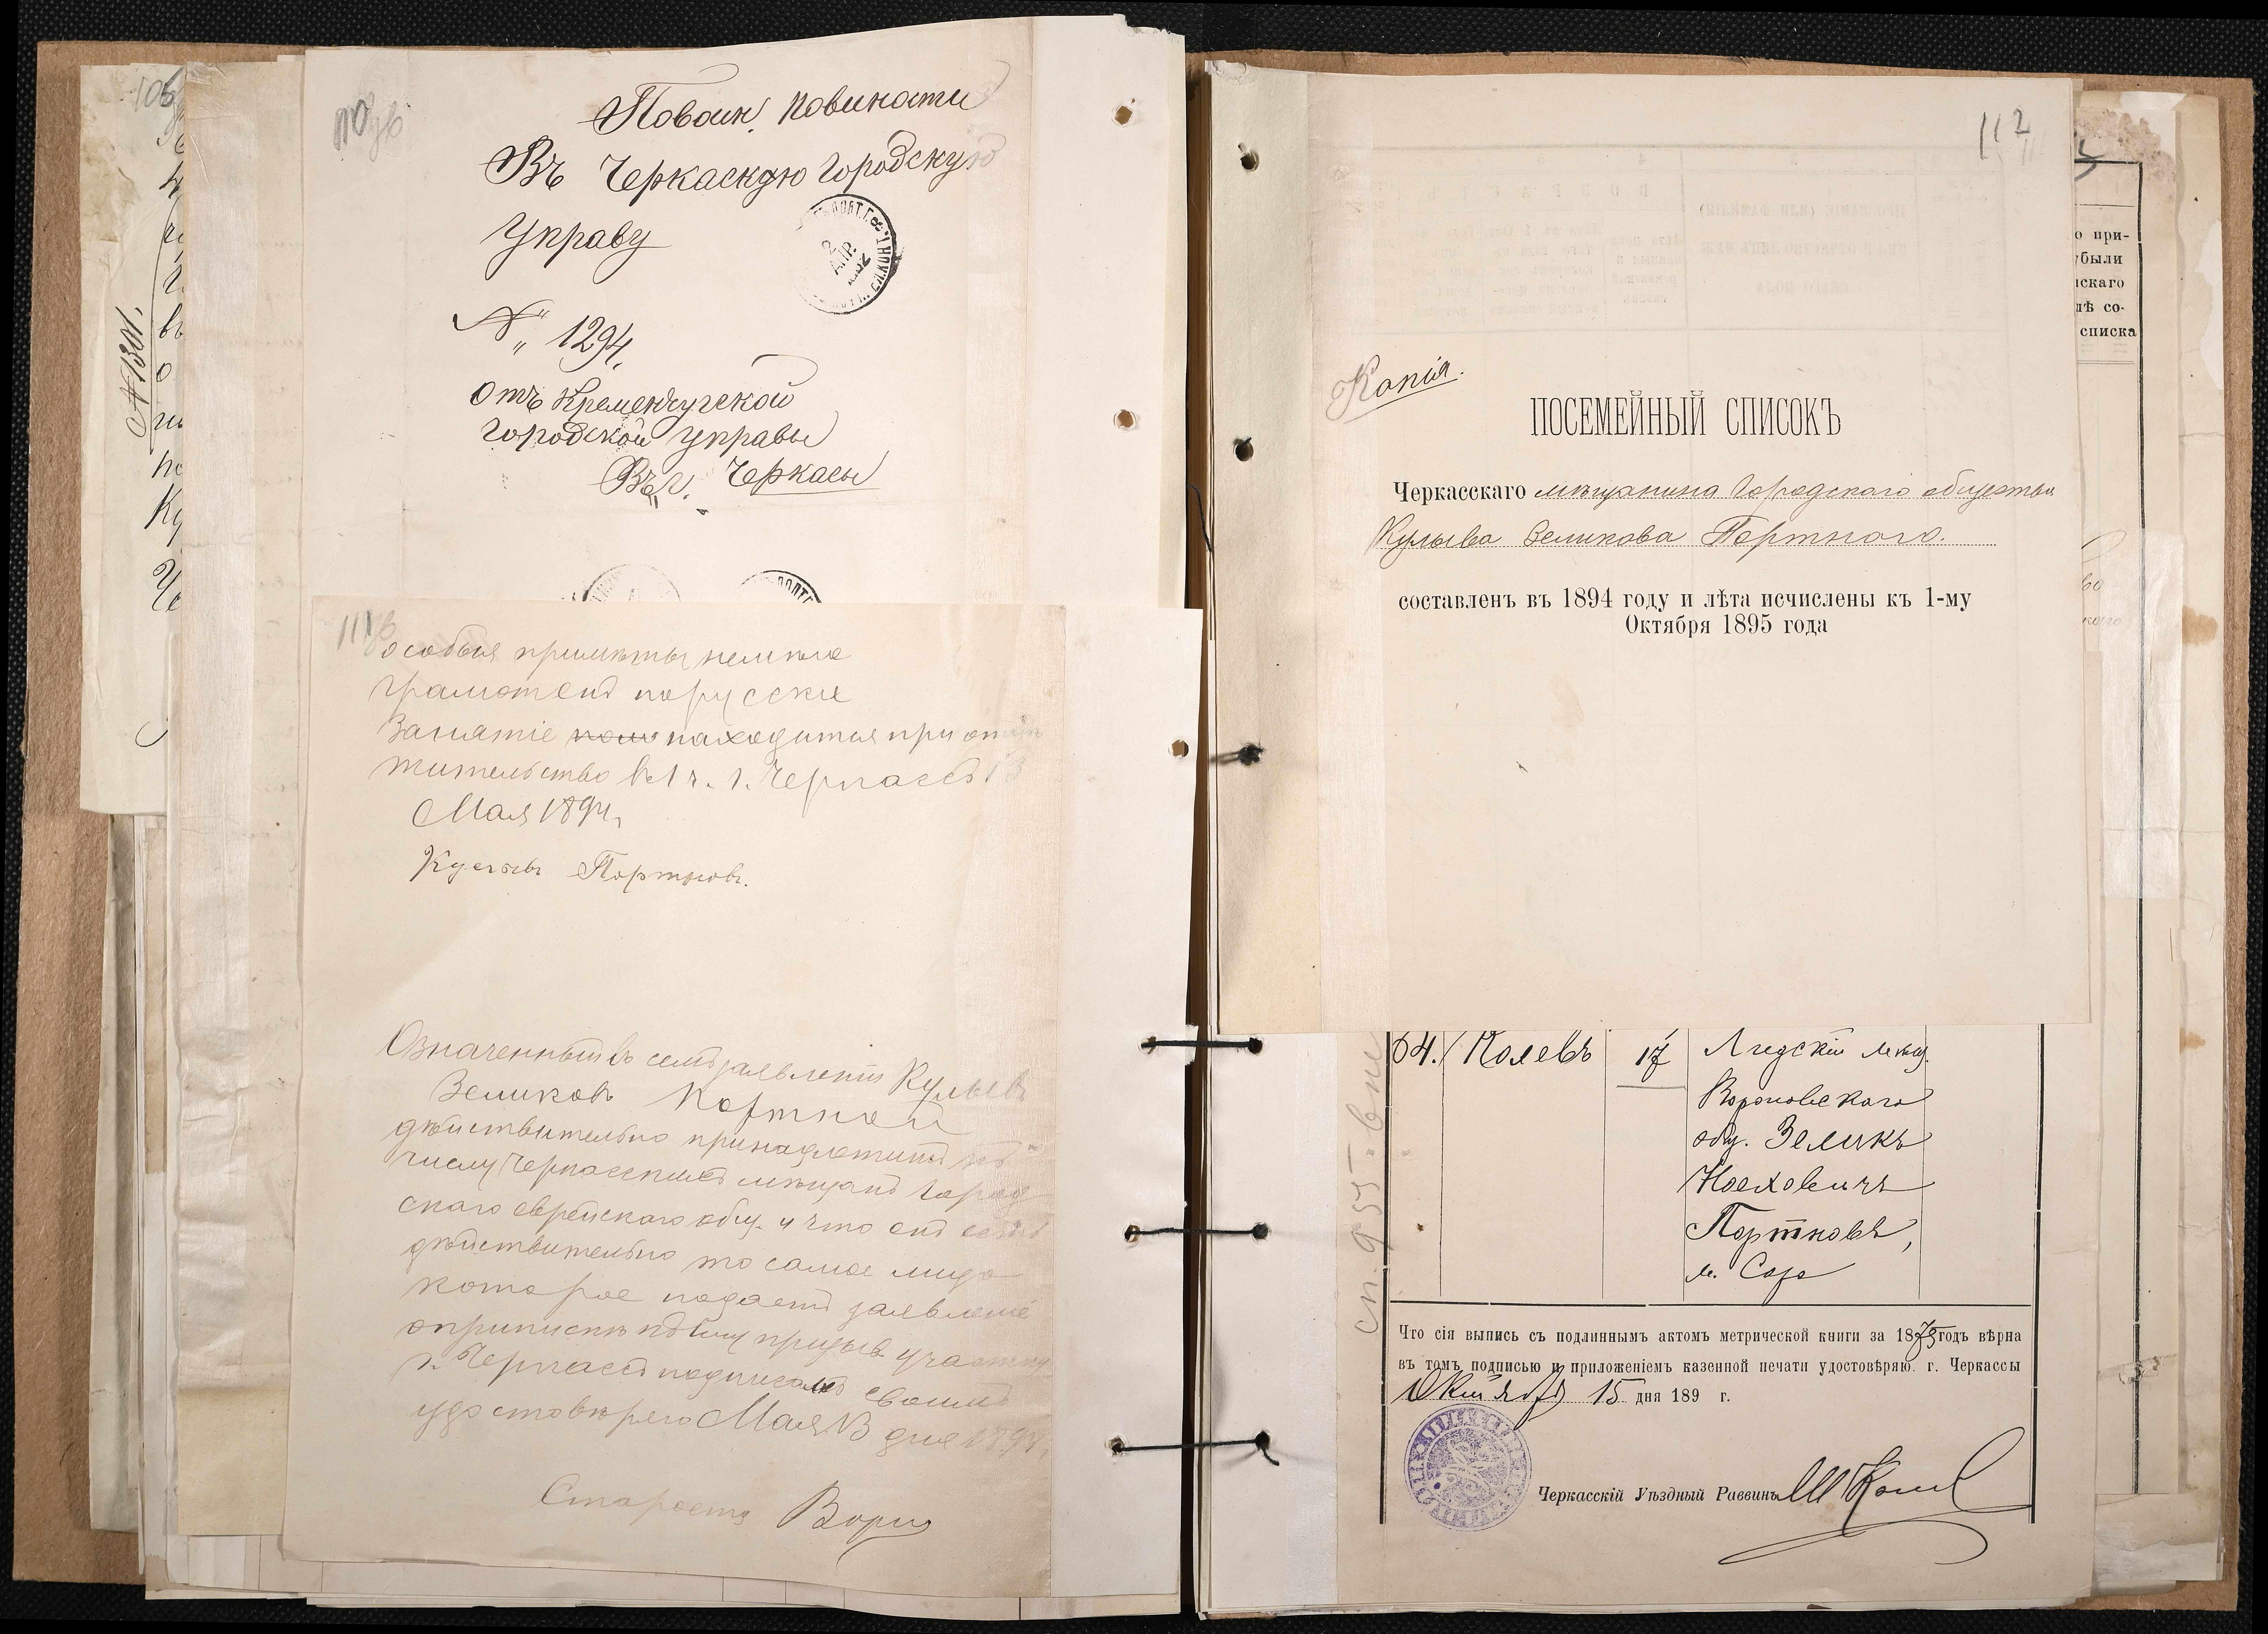 По воин. повиности
Въ Черкаскую Городскую
Управу
2
АПР.
№ 1294.
отъ Кременчугской
городской управы
Въ г. Черкасы
№ 1301.
особыя приметы неимѣю
грамотенъ по русски
Занятіе находится при отцѣ
жительство в 1 ч. г. Черкассъ 13
Мая 1894 г.
Портновъ.
Означенный въ семъ заявленіи Кульевъ
Зеликовъ Портной
дѣйствительно принадлежитъ къ
числу Черкасскихъ мѣщанъ Город
скаго еврейскаго общ. и что онъ есть
дѣйствительно то самое лицо
которое подаетъ заявленіе
о припискѣ къ призыв участку
г. Черкассъ подписалъ своимъ
удостовѣряю Мая 13 дня 1894 г.
Староста
112
Копія.
ПОСЕМЕЙНЫЙ СПИСОКЪ
Черкасскаго мѣщанина Городскаго общества
Кульева Зеликова Портного.
составленъ въ 1894 году и лѣта исчислены къ 1-му
Октября 1895 года
о при-
были
скаго
лѣ со-
списка
64. Колевъ 17 Лидскій мѣщ.
Вороновскаго
общ. Зеликъ
Ноеховичъ
Портновъ,
м. Сора
Что сія выпись съ подлиннымъ актомъ метрической книги за 1873 годъ вѣрна
въ томъ подписью и приложеніемъ казенной печати удостовѣряю. г. Черкассы
Октября 15 дня 189 г.
Черкасскій Уѣздный Раввинъ